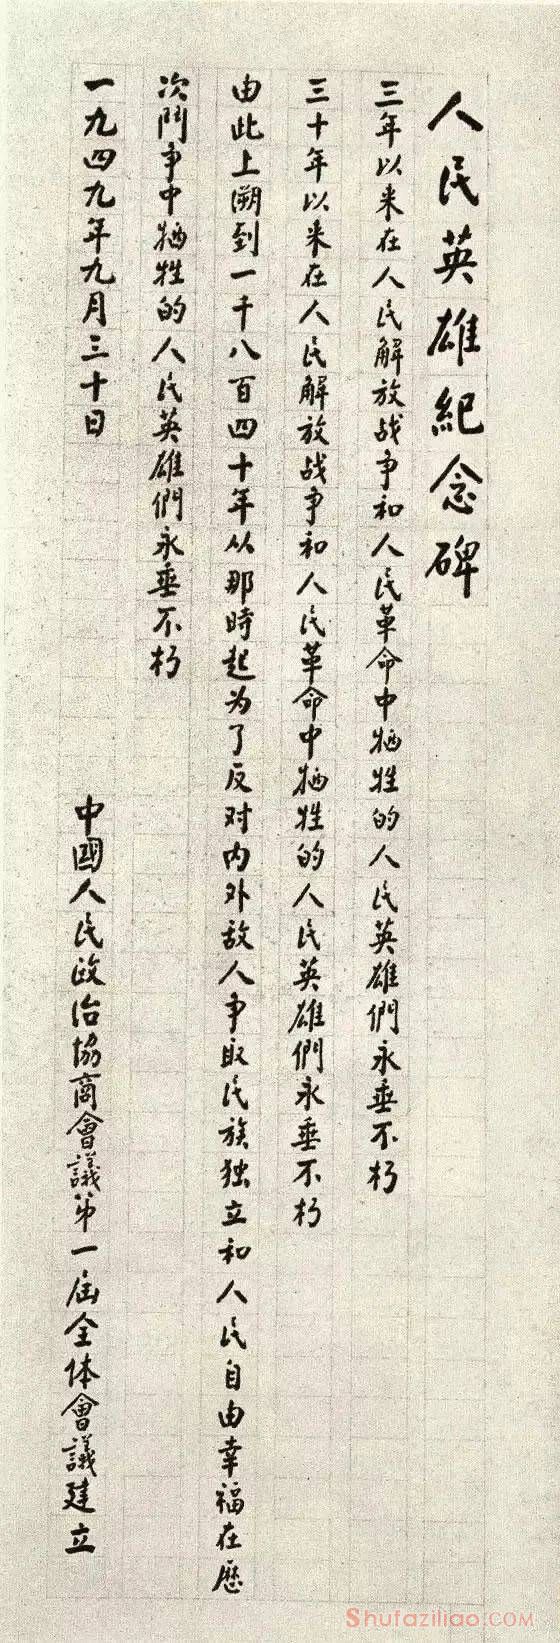 人民英雄紀念碑
三年以来在人民解放战争和人民革命中牺牲的人民英雄們永垂不朽
三十年以来在人民解放战争和人民革命中牺牲的人民英雄們永垂不朽
由此上溯到一千八百四十年从那時起为了反对内外敌人争取民族独立和人民自由幸福在歷
次鬥争中牺牲的人民英雄們永垂不朽
一九四九年九月三十日
中國人民政治協商會議第一屆全体會議建立
Shufaziliao.com